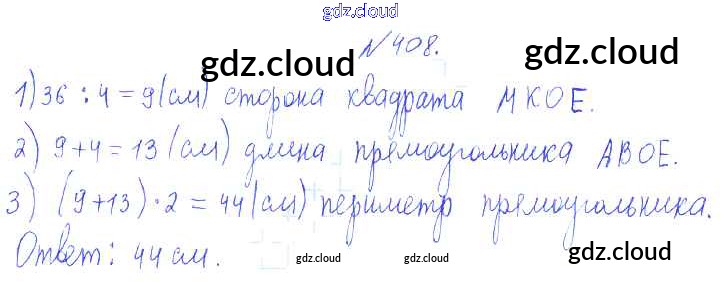 gdz.cloud
№408.
gdz.cloud gdz.cloud
1) 36 : 4 = 9 (см) сторона квадрата МКОЕ.
2) 9 + 4 = 13 (см) длина прямоугольника АВОЕ.
3) (9 + 13) · 2 = 44 (см) периметр прямоугольника.
Ответ: 44 см.
gdz.cloud gdz.cloud gdz.cloud